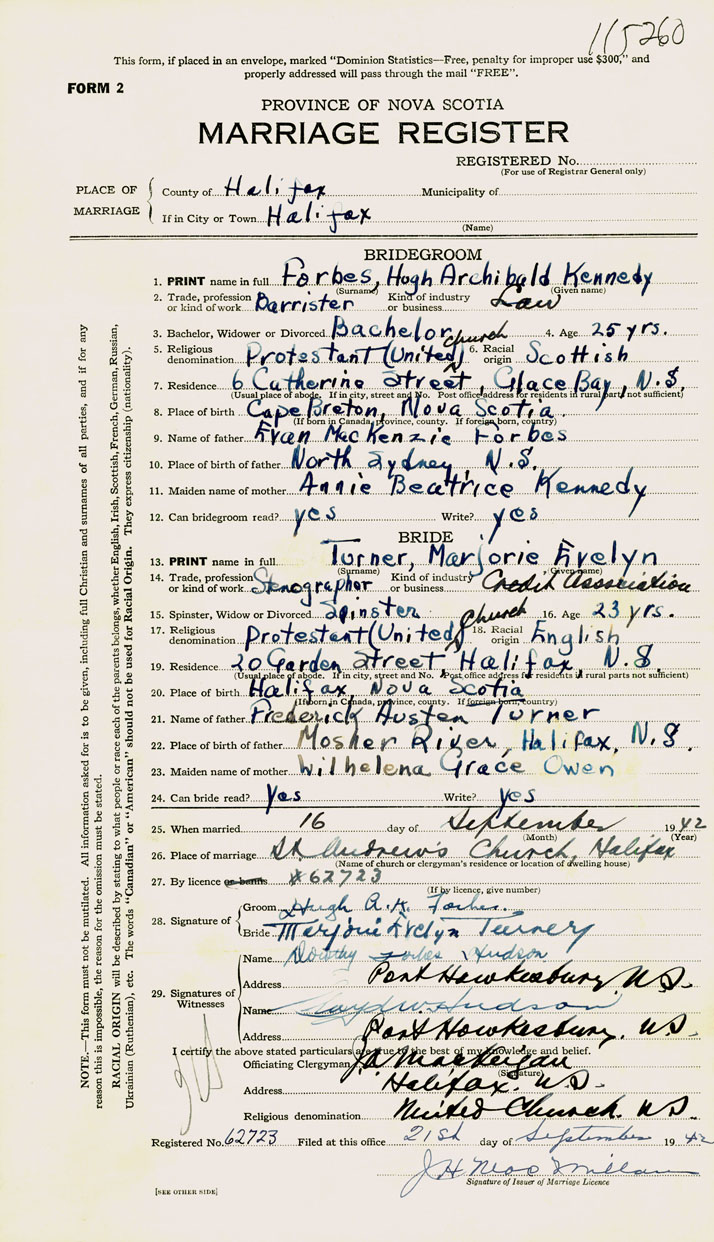 115260
This form, if placed in an envelope, marked "Dominion Statistics—Free, penalty for improper use $300," and
properly addressed will pass through the mail "FREE".
FORM 2
PROVINCE OF NOVA SCOTIA
MARRIAGE REGISTER
REGISTERED No.
(For use of Registrar General only)
PLACE OF MARRIAGE
County of Halifax Municipality of
If in City or Town Halifax
(Name)
BRIDEGROOM
1. PRINT name in full Forbes, Hugh Archibald Kennedy
(Surname) (Given name)
2. Trade, profession or kind of work Barrister Kind of industry or business Law
3. Bachelor, Widower or Divorced Bachelor 4. Age 25 yrs.
5. Religious denomination Protestant (United Church) 6. Racial origin Scottish
7. Residence 6 Catherine Street, Glace Bay, N.S.
(Usual place of abode. If in city, street and No. Post office address for residents in rural parts not sufficient)
8. Place of birth Cape Breton, Nova Scotia.
(If born in Canada, province, county. If foreign born, country)
9. Name of father Evan MacKenzie Forbes
10. Place of birth of father North Sydney, N.S.
11. Maiden name of mother Annie Beatrice Kennedy
12. Can bridegroom read? yes Write? yes
BRIDE
13. PRINT name in full Turner, Marjorie Evelyn
(Surname) (Given name)
14. Trade, profession or kind of work Stenographer Kind of industry or business Credit Association
15. Spinster, Widow or Divorced Spinster 16. Age 23 yrs.
17. Religious denomination Protestant (United Church) 18. Racial origin English
19. Residence 20 Garden Street, Halifax, N.S.
(Usual place of abode. If in city, street and No. Post office address for residents in rural parts not sufficient)
20. Place of birth Halifax, Nova Scotia
(If born in Canada, province, county. If foreign born, country)
21. Name of father Frederick Austen Turner
22. Place of birth of father Mosher River, Halifax, N.S.
23. Maiden name of mother Wilhelena Grace Owen
24. Can bride read? Yes Write? yes
25. When married 16 day of September 1942
(Month) (Year)
26. Place of marriage St. Andrew's Church, Halifax
(Name of church or clergyman's residence or location of dwelling house)
27. By licence or banns #62723
(If by licence, give number)
28. Signature of
Groom Hugh A.K. Forbes
Bride Marjorie Evelyn Turner
29. Signatures of Witnesses
Name Dorothy Forbes Hudson
Address Port Hawkesbury, N.S.
Name Hudson
Address Port Hawkesbury, N.S.
I certify the above stated particulars are true to the best of my knowledge and belief.
Officiating Clergyman
(Signature)
Address Halifax, N.S.
Religious denomination United Church. N.S.
Registered No. 62723 Filed at this office 21st day of September 1942
J H MacMillan
Signature of Issuer of Marriage Licence
[SEE OTHER SIDE]
NOTE.—This form must not be mutilated. All information asked for is to be given, including full Christian and surnames of all parties, and if for any
reason this is impossible, the reason for the omission must be stated.
RACIAL ORIGIN will be described by stating to what people or race each of the parents belongs, whether English, Irish, Scottish, French, German, Russian,
Ukrainian (Ruthenian), etc. The words "Canadian" or "American" should not be used for Racial Origin. They express citizenship (nationality).